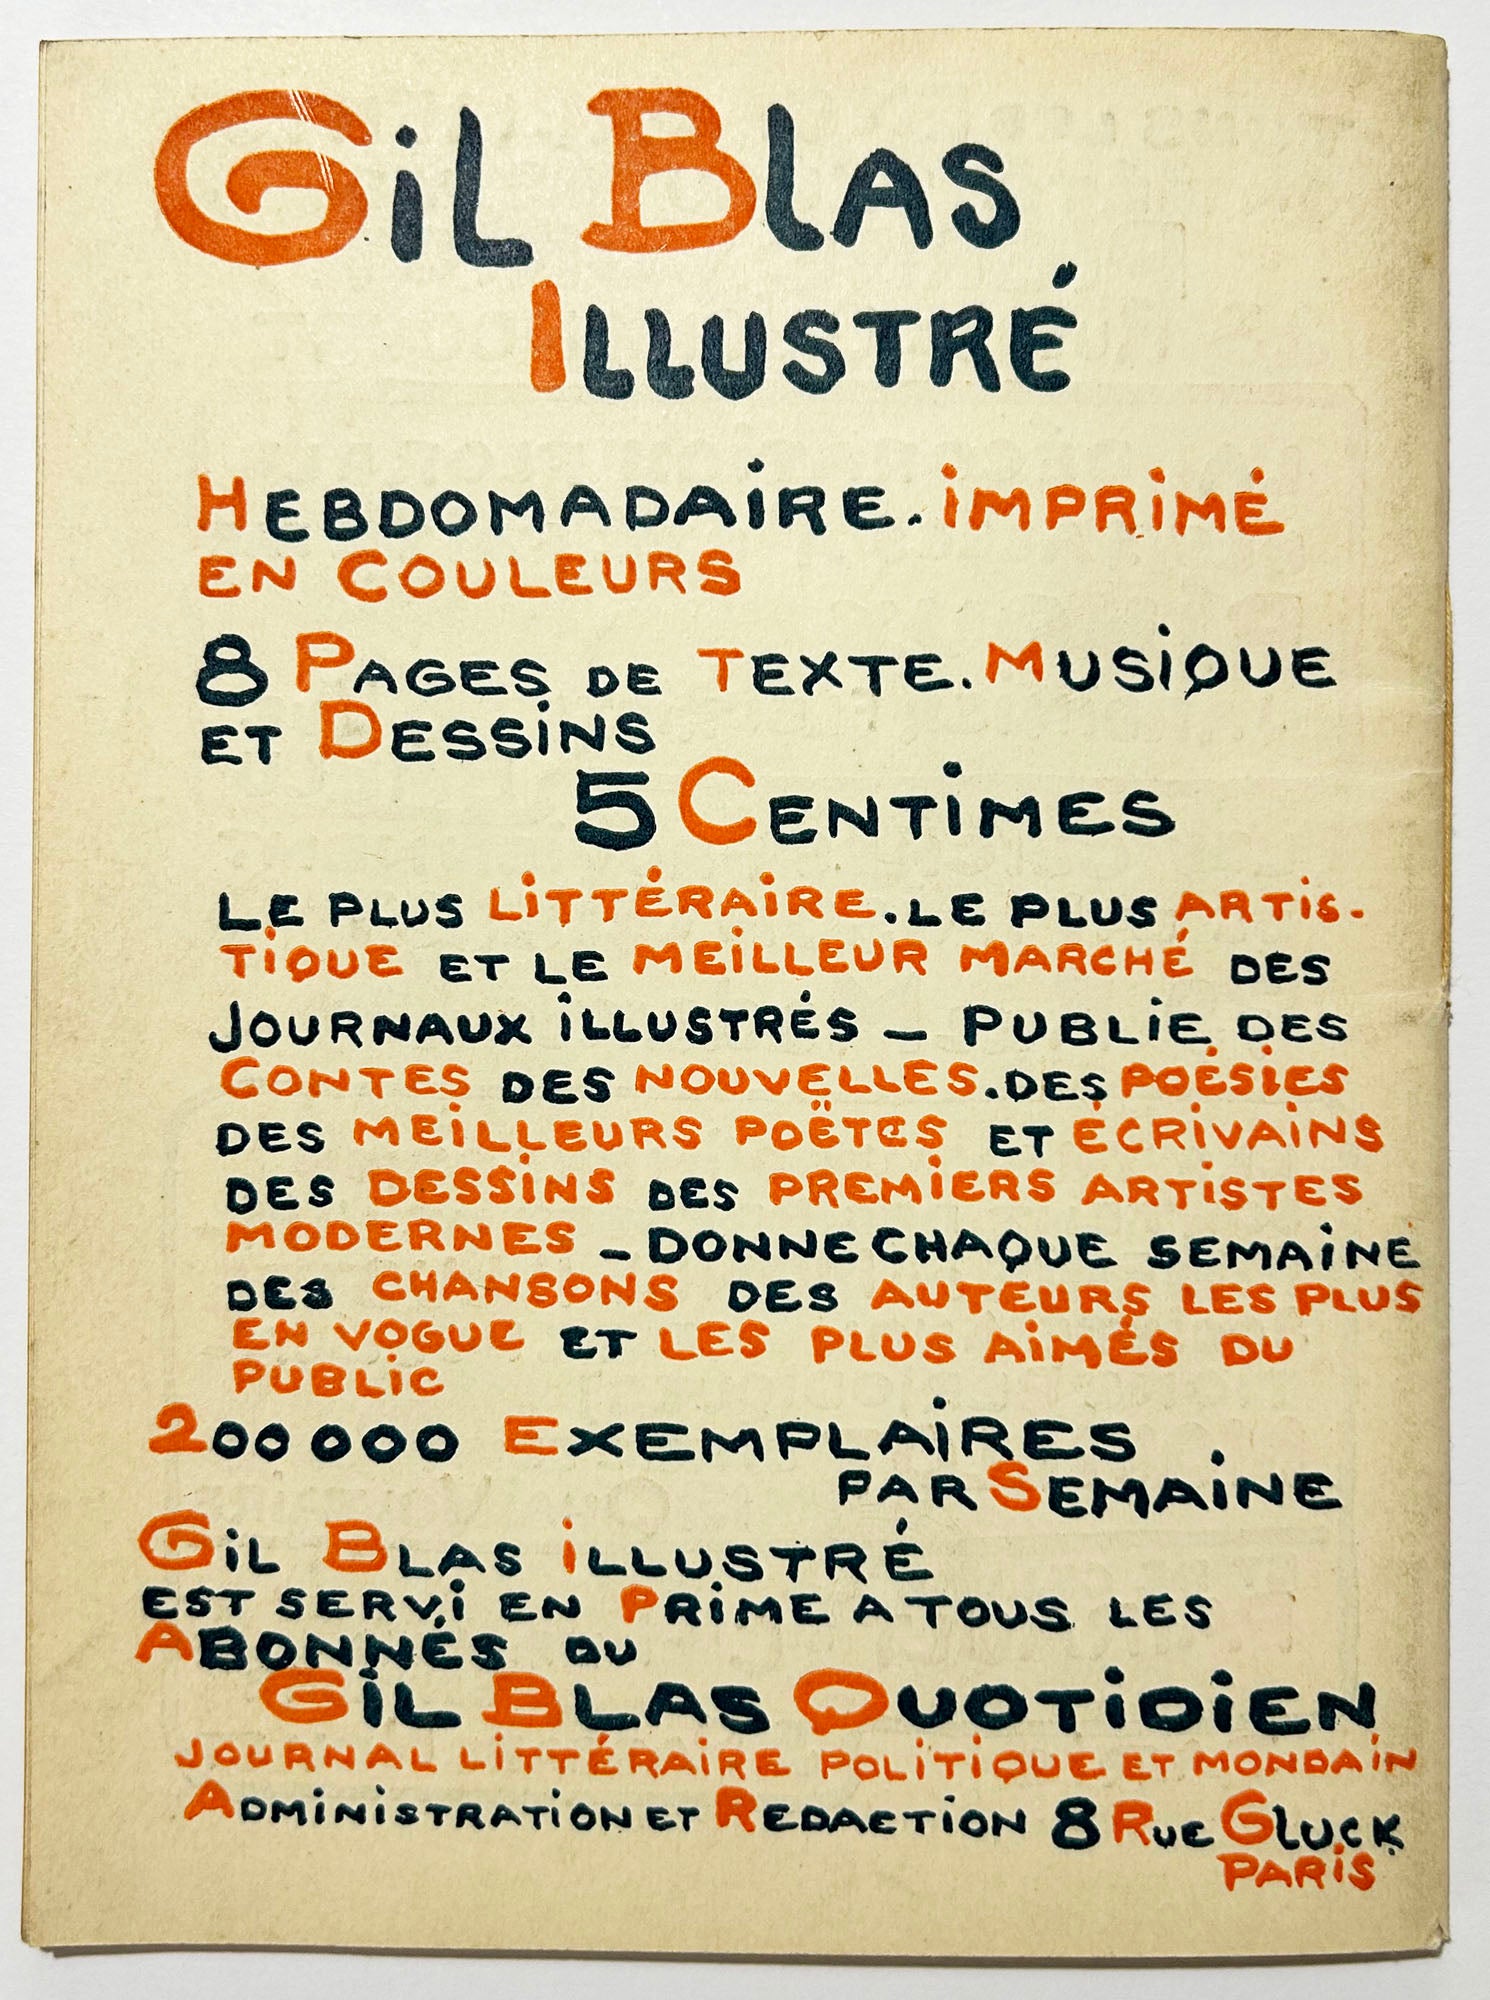 GiL BLAS
ILLUSTRÉ
HEBDOMADAiRE. iMPRiMÉ
EN COULEURS
8 PAGES DE TEXTE. MUSiQUE
ET DESSiNS
5 CENTiMES
LE PLUS LiTTÉRAiRE. LE PLUS ARTiS-
TiQUE ET LE MEiLLEUR MARCHÉ DES
JOURNAUX iLLUSTRÉS – PUBLiE DES
CONTES DES NOUVELLES. DES POÉSiES
DES MEiLLEURS POËTES ET ÉCRiVAiNS
DES DESSiNS DES PREMiERS ARTiSTES
MODERNES – DONNE CHAQUE SEMAiNE
DES CHANSONS DES AUTEURS LES PLUS
EN VOGUE ET LES PLUS AiMÉS DU
PUBLiC
200 000 EXEMPLAiRES
PAR SEMAiNE
GiL BLAS iLLUSTRÉ
EST SERVi EN PRiME A TOUS LES
ABONNÉS DU
GiL BLAS QUOTiDiEN
JOURNAL LiTTÉRAiRE POLiTiQUE ET MONDAiN
ADMiNiSTRATiON ET REDACTiON 8 RUE GLUCK
PARiS